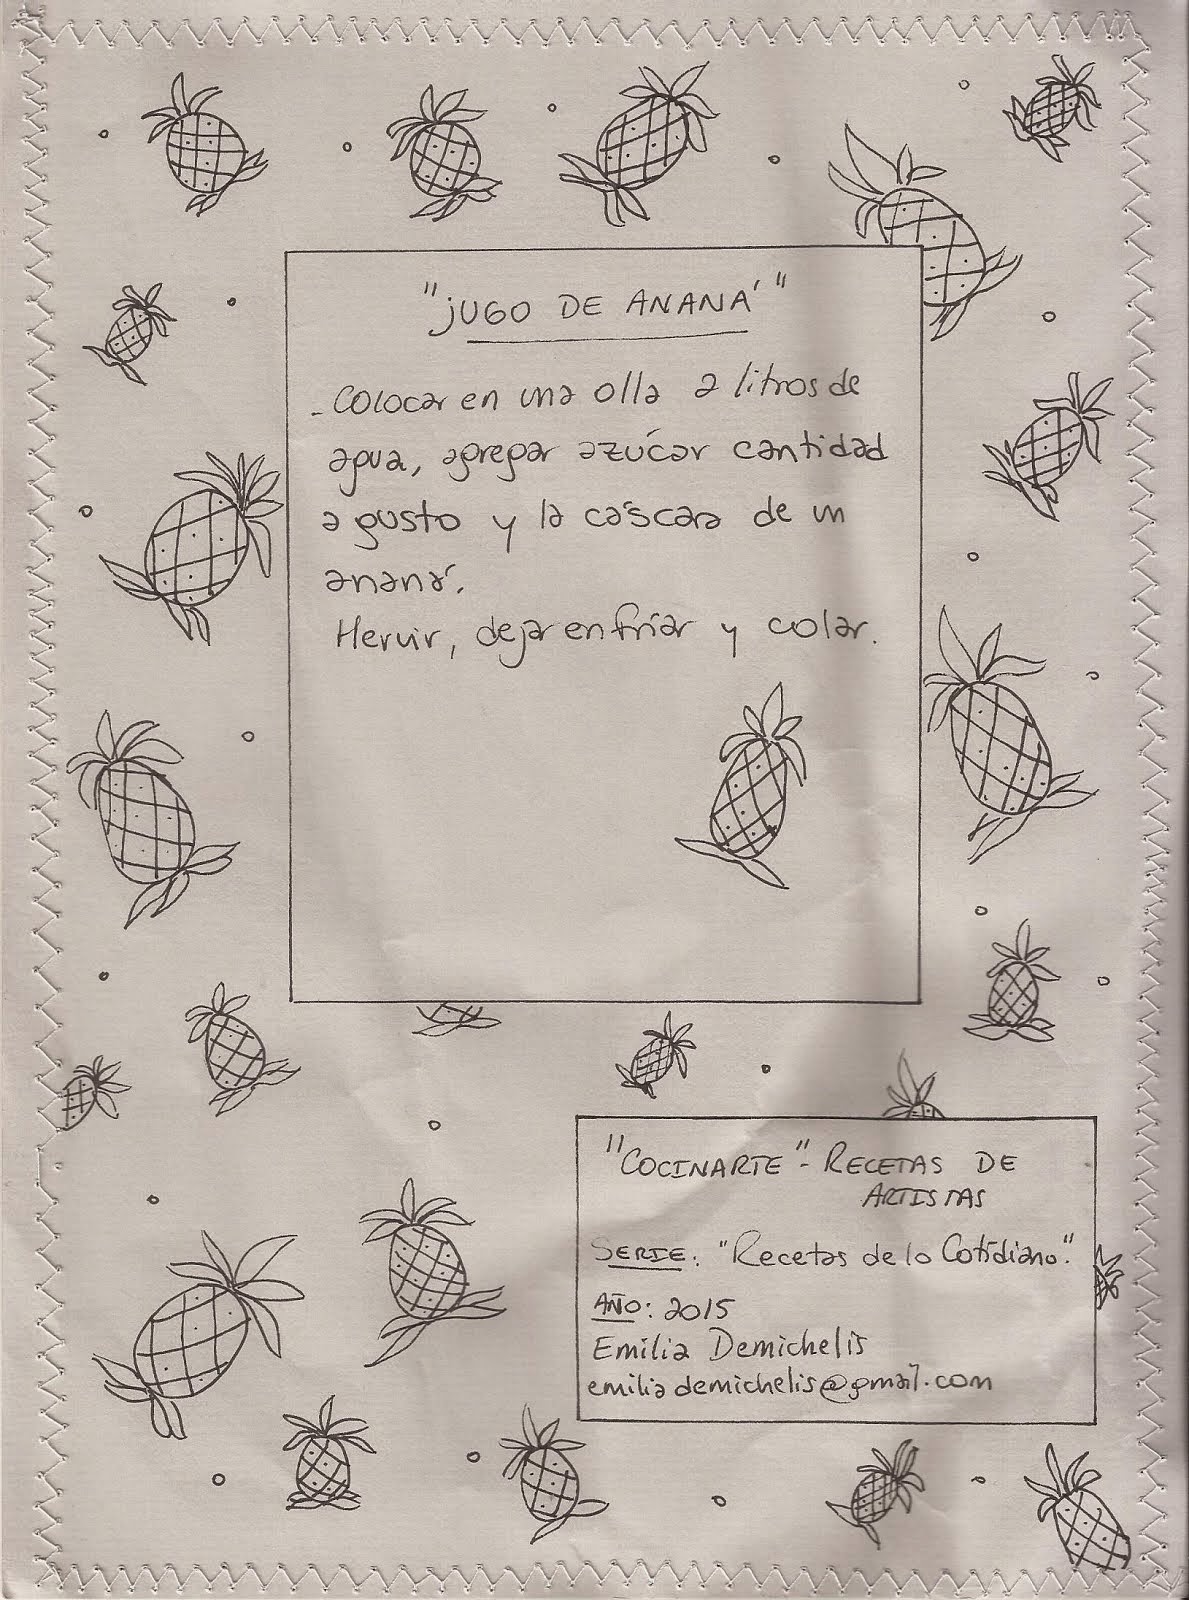 "JUGO DE ANANÁ"
- Colocar en una olla 2 litros de
agua, agregar azúcar cantidad
a gusto y la cáscara de un
ananá.
Hervir, dejar enfriar y colar.
"COCINARTE" - RECETAS DE
ARTISTAS
SERIE: "Recetas de lo Cotidiano".
AÑO: 2015
Emilia Demichelis
emiliademichelis@gmail.com